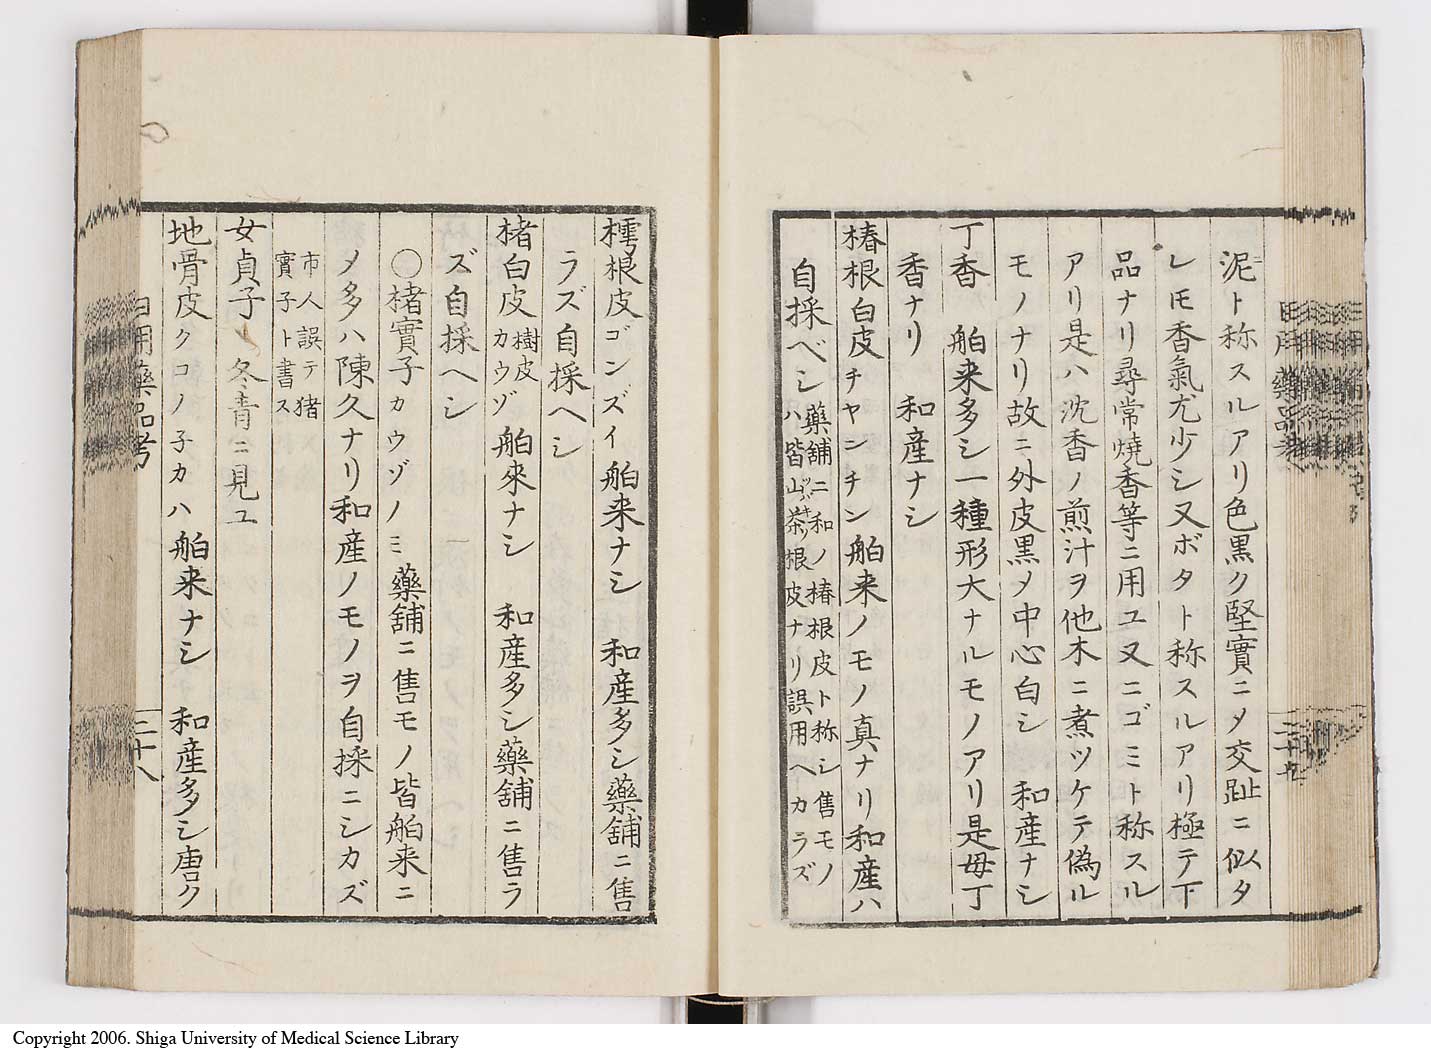 泥ト称スルアリ色黒ク堅實ニメ交趾ニ似タ
レ𪜈香氣尤少シ又ボタト称スルアリ極テ下
品ナリ尋常燒香等ニ用ユ又ニゴミト称スル
アリ是ハ沈香ノ煎汁ヲ他木ニ煮ツケテ偽ル
モノナリ故ニ外皮黒メ中心白シ 和産ナシ
丁香 舶来多シ一種形大ナルモノアリ是母丁
香ナリ 和産ナシ
椿根白皮チヤンチン 舶来ノモノ真ナリ和産ハ
自採ベシ藥舗ニ和ノ椿根皮ト称シ售モノ
ハ皆山茶ツバキノ根皮ナリ誤用ヘカラズ
樗根皮ゴンズイ 舶来ナシ 和産多シ藥舗ニ售
ラズ自採ヘシ
楮白皮樹皮カウヅ 舶來ナシ 和産多シ藥舗ニ售ラ
ズ自採ヘシ
〇楮實子カウヅノミ 藥舗ニ售モノ皆舶来ニ
メ多ハ陳久ナリ和産ノモノヲ自採ニシカズ
市人誤テ猪
實子ト書ス
女貞子 冬青ニ見ユ
地骨皮クコノ子カハ 舶来ナシ 和産多シ唐ク
日用藥品考
二十八
Copyright 2006. Shiga University of Medical Science Library